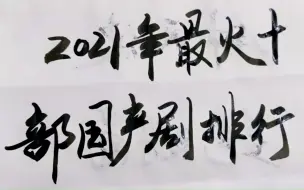 2021年最火十
部国产剧排行